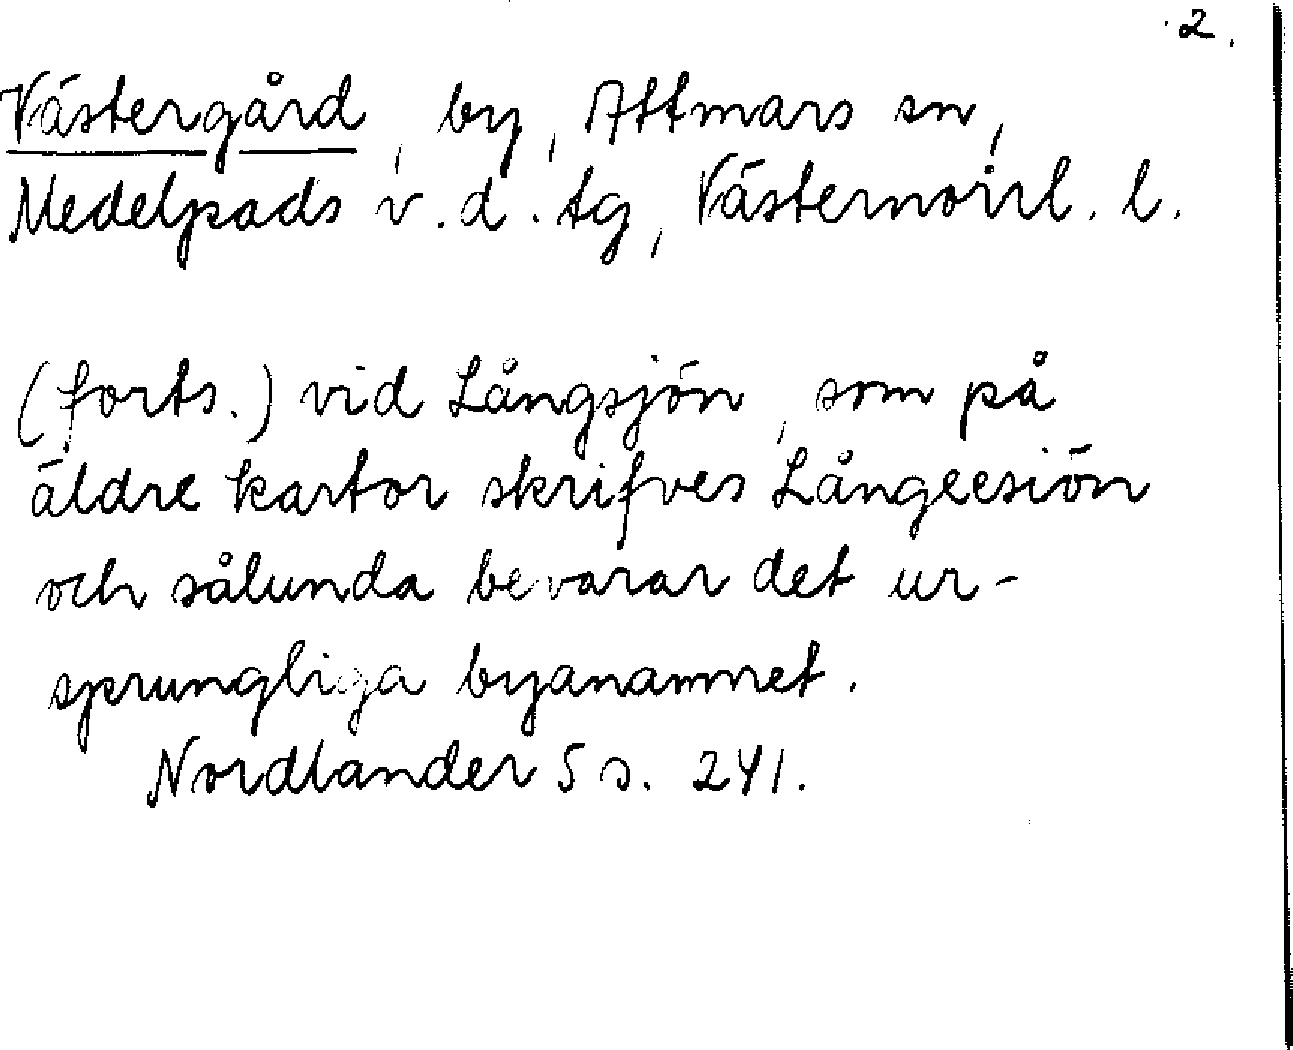 2.
Västergård, by, Attmars sn,
Medelpads v. d. tg, Västernorrl. l.
(forts.) vid Långsjön, som på
äldre kartor skrifves Långeesiön
och sålunda bevarar det ur-
sprungliga byanamnet.
Nordlander 5 s. 241.